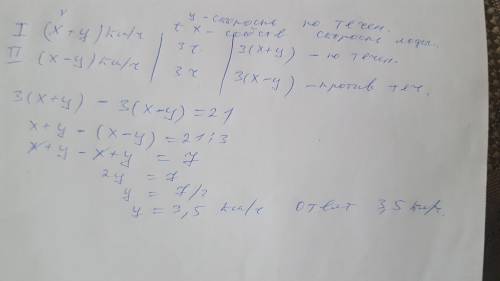 v
t y - скорость по течен.
x - собств скорость лодк.
I (x+y) км/ч | 3ч | 3(x+y) - по течен.
II (x-y) км/ч | 3ч | 3(x-y) - против теч.
3(x+y) - 3(x-y) = 21
x+y - (x-y) = 21:3
x+y - x+y = 7
2y = 7
y = 7/2
y = 3,5 км/ч ответ 3,5 км/ч.